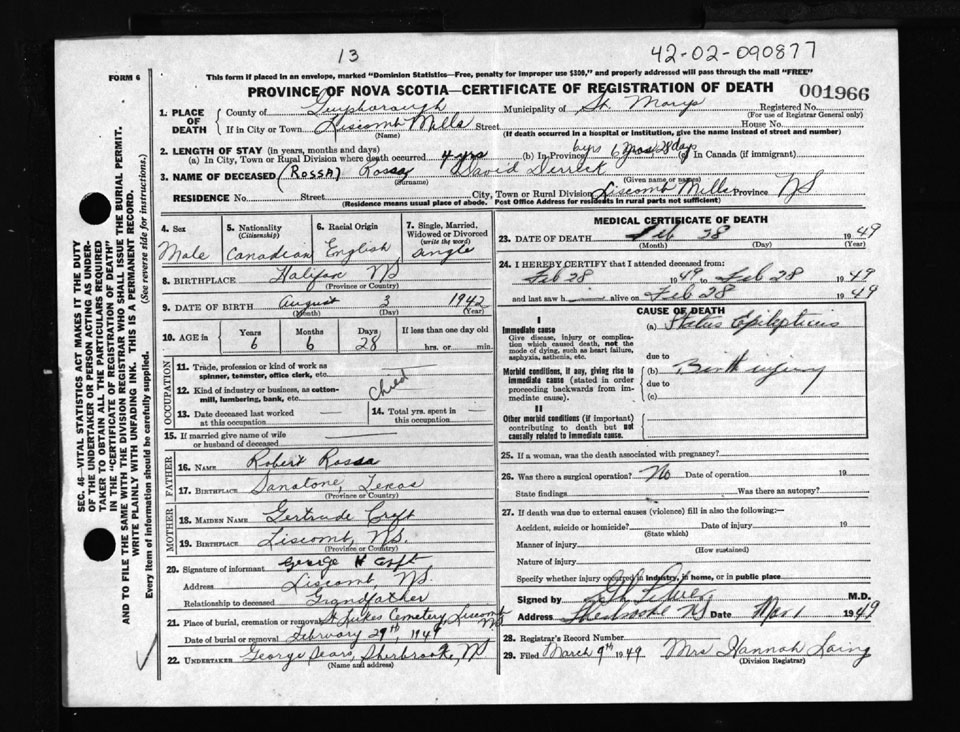 13
42-02-090877
FORM 6
This form if placed in an envelope, marked "Dominion Statistics—Free, penalty for improper use $300," and properly addressed will pass through the mail "FREE"
PROVINCE OF NOVA SCOTIA—CERTIFICATE OF REGISTRATION OF DEATH
001966
1. PLACE OF DEATH
County of Guysborough Municipality of St. Marys Registered No.
(For use of Registrar General only)
If in City or Town Liscomb Mills Street House No.
(Name) (If death occurred in a hospital or institution, give the name instead of street and number)
2. LENGTH OF STAY (in years, months and days)
(a) In City, Town or Rural Division where death occurred 4 yrs (b) In Province 6 yrs 6 mos 28 days (c) In Canada (if immigrant)
3. NAME OF DECEASED (ROSSA) Rossa David Derrick
(Surname) (Given name or names)
RESIDENCE No. Street City, Town or Rural Division Liscomb Mills Province NS
(Residence means usual place of abode. Post Office Address for residents in rural parts not sufficient)
4. Sex Male
5. Nationality (Citizenship) Canadian
6. Racial Origin English
7. Single, Married, Widowed or Divorced (write the word) Single
8. BIRTHPLACE Halifax NS
(Province or Country)
9. DATE OF BIRTH August 3 1942
(Month) (Day) (Year)
10. AGE in Years 6 Months 6 Days 28 If less than one day old
hrs. or min.
OCCUPATION
11. Trade, profession or kind of work as spinner, teamster, office clerk, etc.
12. Kind of industry or business, as cotton-mill, lumbering, bank, etc.
Child
13. Date deceased last worked at this occupation
14. Total yrs. spent in this occupation
15. If married give name of wife or husband of deceased
FATHER
16. NAME Robert Rossa
17. BIRTHPLACE Sanatone, Texas
(Province or Country)
MOTHER
18. MAIDEN NAME Gertrude Croft
19. BIRTHPLACE Liscomb, NS.
(Province or Country)
20. Signature of informant George H Croft
Address Liscomb, NS.
Relationship to deceased Grandfather
21. Place of burial, cremation or removal St Lukes Cemetery, Liscomb NS
Date of burial or removal February 29th 1949
22. UNDERTAKER George Sears, Sherbrooke, NS
(Name and address)
MEDICAL CERTIFICATE OF DEATH
23. DATE OF DEATH Feb 28 1949
(Month) (Day) (Year)
24. I HEREBY CERTIFY that I attended deceased from:
Feb 28 1949 to Feb 28 1949
and last saw h alive on Feb 28 1949
CAUSE OF DEATH
I
Immediate cause
Give disease, injury or complication which caused death, not the mode of dying, such as heart failure, asphyxia, asthenia, etc.
(a) Status Epilepticus
due to
Morbid conditions, if any, giving rise to immediate cause (stated in order proceeding backwards from immediate cause).
(b) Birth injury
due to
(c)
II
Other morbid conditions (if important) contributing to death but not causally related to immediate cause.
25. If a woman, was the death associated with pregnancy?
26. Was there a surgical operation? No Date of operation 19
State findings Was there an autopsy?
27. If death was due to external causes (violence) fill in also the following:—
Accident, suicide or homicide? Date of injury 19
(State which)
Manner of injury
(How sustained)
Nature of injury
Specify whether injury occurred in industry, in home, or in public place
Signed by M.D.
Address Sherbrooke NS Date Mar 1 1949
28. Registrar's Record Number
29. Filed March 9th 1949 Mrs Hannah Laing
(Division Registrar)
SEC. 46—VITAL STATISTICS ACT MAKES IT THE DUTY
OF THE UNDERTAKER OR PERSON ACTING AS UNDER-
TAKER TO OBTAIN ALL THE PARTICULARS REQUIRED
IN THE "CERTIFICATE OF REGISTRATION OF DEATH"
AND TO FILE THE SAME WITH THE DIVISION REGISTRAR WHO SHALL ISSUE THE BURIAL PERMIT.
WRITE PLAINLY WITH UNFADING INK. THIS IS A PERMANENT RECORD.
Every item of information should be carefully supplied. (See reverse side for instructions.)